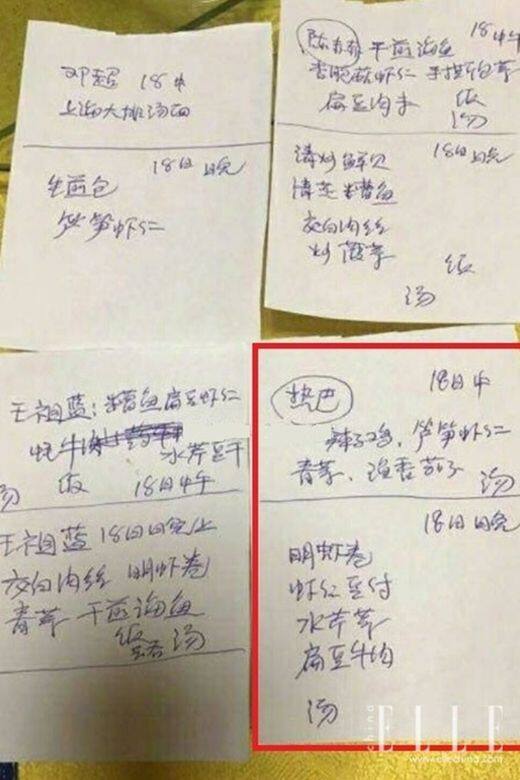 邓超 18中
上海大排汤面
18日晚
生煎包
芦笋虾仁
陈赫 干煎海鱼 18中午
虾仁
扁豆肉
饭
汤
清炒鲜贝 18日晚
糟鱼
交白肉丝
炒菠菜 饭
汤
王祖蓝: 糟鱼 扁豆虾仁
水芹豆干
汤 饭 18日中午
王祖蓝 18日晚上
交白肉丝 明虾卷
青菜 干煎海鱼
饭 汤
热巴 18日中
辣子鸡, 芦笋虾仁
青菜、鱼香茄子 汤
18日晚
明虾卷
虾仁豆付
水芹菜
扁豆牛肉
汤
china
ELLE
www.ellechina.com